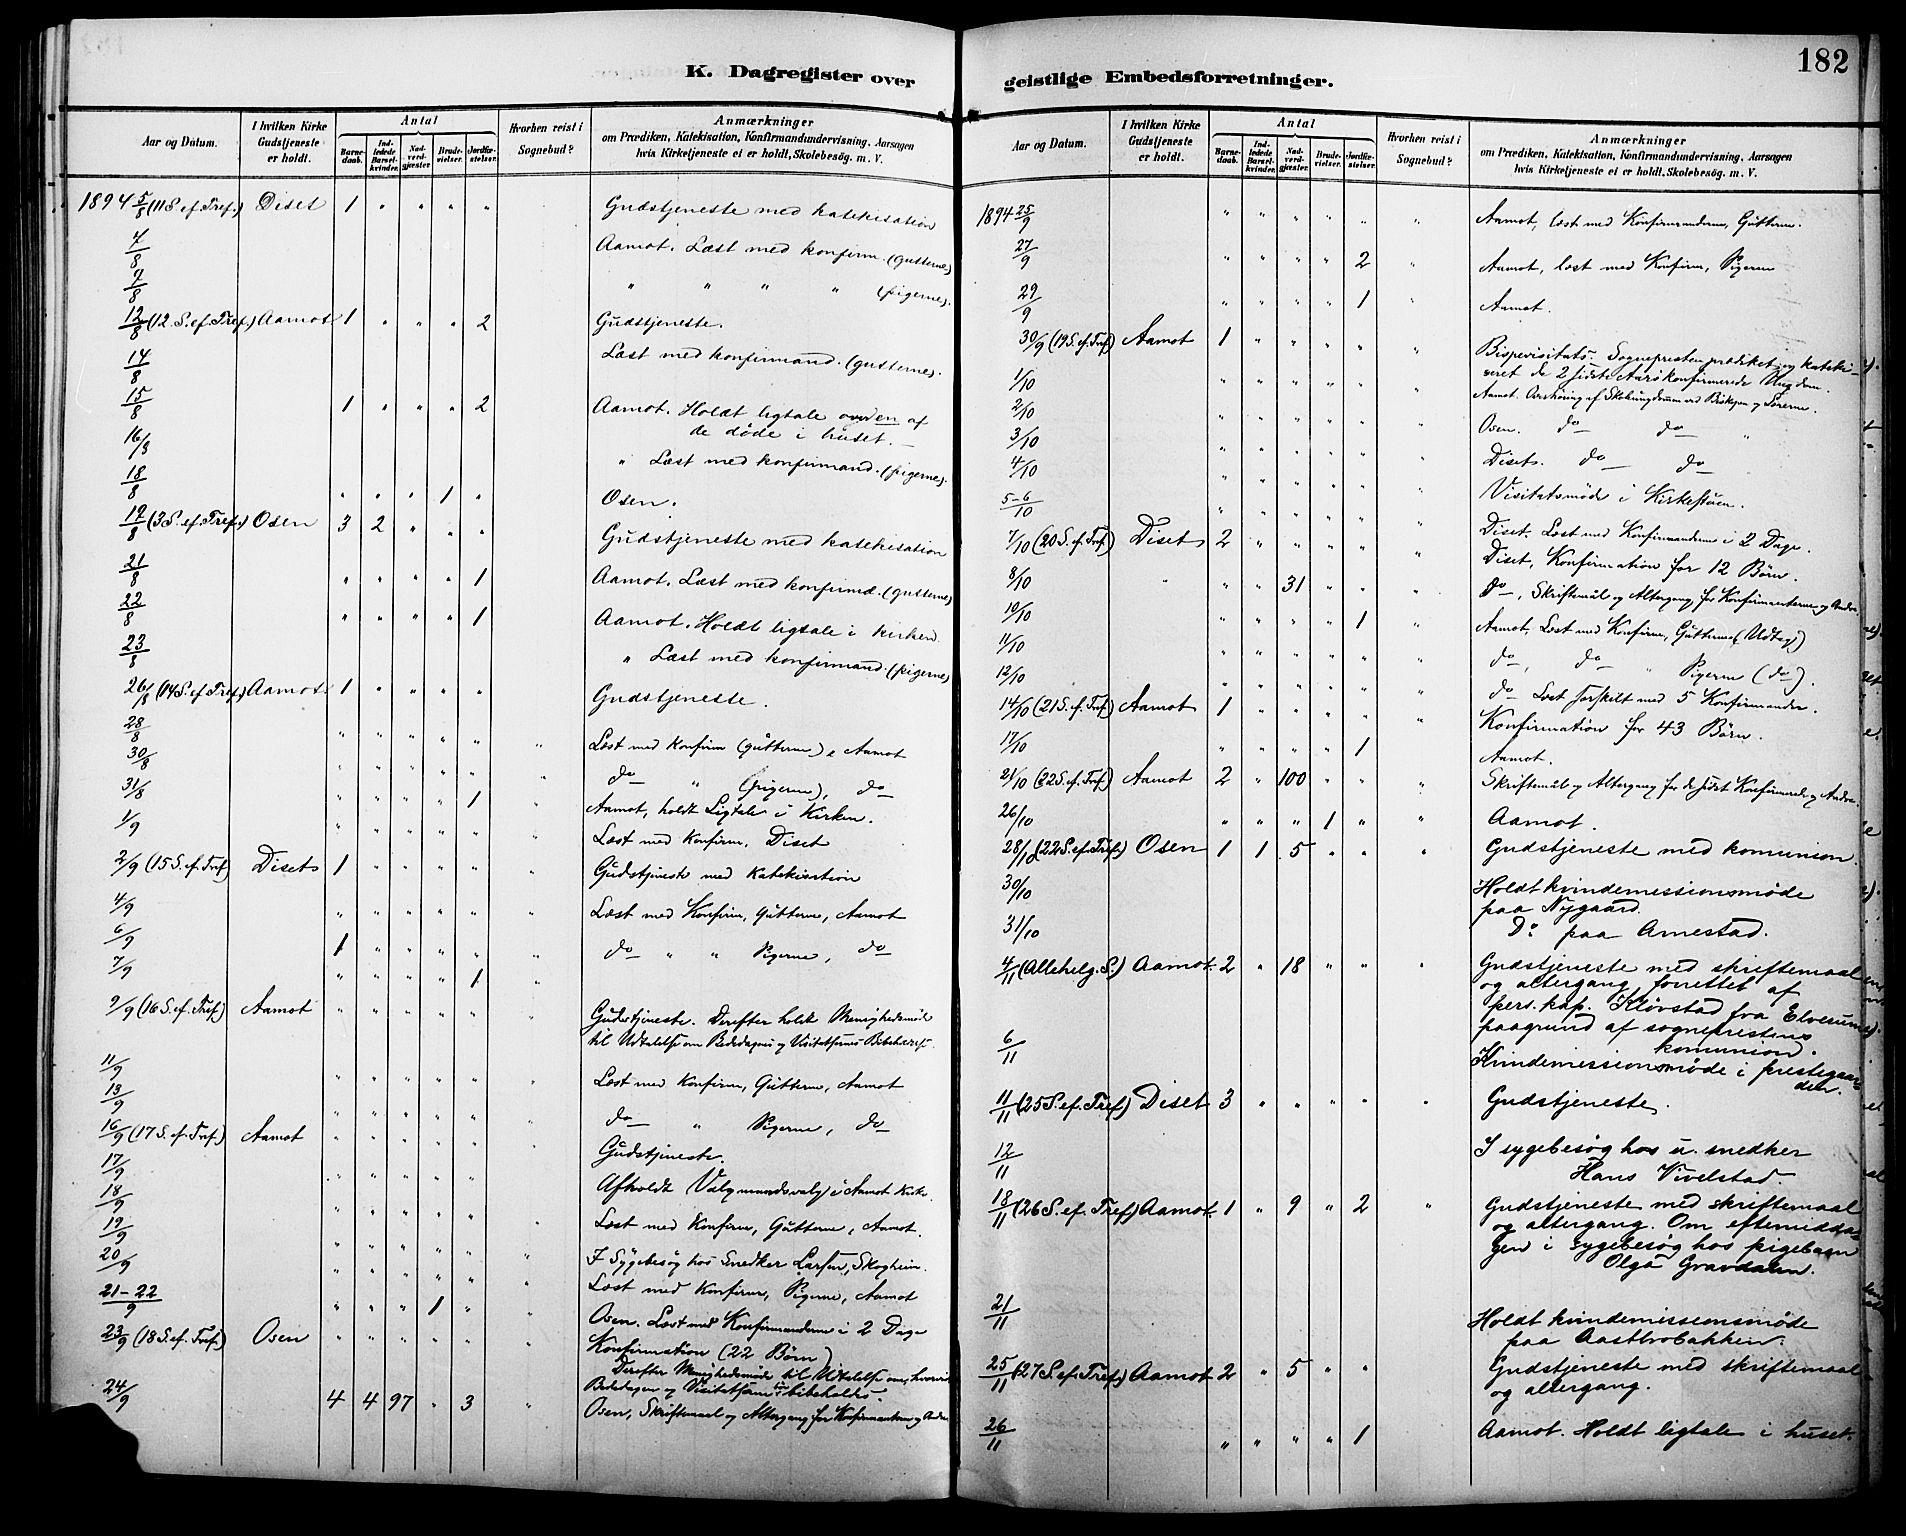 182
K. Dagregister over
Aar og Datum. I hvilken Kirke Gudstjeneste er holdt. Antal Barnedaab. Indledede Barselkvinder. Nadverdgjester. Brudevielser. Jordfæstelser. Hvorhen reist i Sognebud? Anmærkninger om Prædiken, Katekisation, Konfirmandundervisning, Aarsagen hvis Kirketjeneste ei er holdt, Skolebesøg. m. V.
1894 5/8 (11 S. ef. Tref.) Diset 1 " " " " Gudstjeneste med katekisation
7/8 Aamot. Læst med konfirm. (gutterne)
9/8 " " " " (pigerne).
12/8 (12. S. ef. Tref.) Aamot 1 " " " 2 Gudstjeneste.
14/8 Læst med konfirmand. (gutterne).
15/8 1 " " " 2 Aamot. Holdt ligtale over en af
de døde i huset.
16/8 " Læst med konfirmand. (pigerne).
18/8 " " " 1 " Osen.
19/8 (13 S. ef. Tref.) Osen 3 2 " " " Gudstjeneste med katekisation
21/8 " " " " 1 Aamot. Læst med konfirmd. (gutterne)
22/8 " " " " 1 Aamot. Holdt ligtale i kirken.
23/8 " Læst med konfirmand. (pigerne)
26/8 (14 S. ef. Tref.) Aamot 1 " " " " Gudstjeneste.
28/8 " " " " " " Læst med Konfirm (gutterne) i Aamot
30/8 " " " " " " do " (pigerne), do
31/8 " " " " 1 " Aamot, holdt Ligtale i Kirken.
1/9 " " " " " " Læst med Konfirm. Diset
2/9 (15 S. ef. Tref) Diset 1 " " " " " Gudstjeneste med Katekisation
4/9 " " " " " " Læst med Konfirm, Gutterne, Aamot
6/9 1 " " " " " do " " Pigerne, do
7/9 " " " " 1 "
9/9 (16 S. ef. Tref) Aamot " " " " " " Gudstjeneste. Derefter holdt Menighedsmøde
til Udtalelse om Bededagens og Visitatsernes Bibeholdelse.
11/9 " " " " " " Læst med Konfirm, Gutterne, Aamot
13/9 " " " " " " do " Pigerne, do
16/9 (17 S. ef. Tref.) Aamot " " " " " Gudstjeneste.
17/9 " " " " " Afholdt Valgmandsvalg i Aamot Kirke.
18/9 " " " " " " Læst med Konfirm, Gutterne, Aamot.
19/9 " " " " " " I Sygebesøg hos Snedker Larsen, Skogheim.
20/9 " " " " " " Læst med Konfirm, Pigerne, Aamot
21-22/9 " " " 1 " Osen. Læst med Konfirmanderne i 2 Dage
23/9 (18 S. ef. Tref.) Osen " " " " " Konfirmation (22 Børn)
Derefter Menighedsmøde til Udtalelse om, hvorvidt
Bededagen og Visitatserne bør bibeholdes.
24/9 4 4 97 " 3 " Osen, Skriftemaal og Altergang for Konfirmanterne og Andre
geistlige Embedsforretninger.
Aar og Datum. I hvilken Kirke Gudstjeneste er holdt. Antal Barnedaab. Indledede Barselkvinder. Nadverdgjester. Brudevielser. Jordfæstelser. Hvorhen reist i Sognebud? Anmærkninger om Prædiken, Katekisation, Konfirmandundervisning, Aarsagen hvis Kirketjeneste ei er holdt, Skolebesøg. m. V.
1894 25/9 " " " " " " Aamot, læst med Konfirmanderne, Gutterne.
27/9 " " " " 2 " Aamot, læst med Konfirm, Pigerne
29/9 " " " " 1 " Aamot.
30/9 (19 S. ef. Tref) Aamot 1 " " " " " Bispevisitats. Sognepresten prædiket og kateki-
seret de 2 sidste Aars konfirmerede Ungdom.
1/10 " " " " " " Aamot. Overhøring af Skoleungdommen ved Biskopen og Lærerne.
2/10 " " " " " " Osen. do do "
3/10 " " " " " " Diset. do do
4/10 " " " " " " Visitatsmøde i Kirkestuen.
5-6/10 " " " " " " Diset. Læst med Konfirmanderne i 2 Dage.
7/10 (20 S. ef. Tref) Diset 2 " " " " " Diset, Konfirmation for 12 Børn.
8/10 " " " 31 " " " do, Skriftemål og Altergang for Konfirmanterne og Andre
10/10 " " " " 1 " Aamot, Læst med Konfirm, Gutterne (Udtag)
11/10 " " " " " " do, do " Pigerne (do).
12/10 " " " " " " do Læst særskilt med 5 Konfirmander.
14/10 (21 S. ef. Tref.) Aamot 1 " " " " " Konfirmation for 43 Børn.
17/10 " " " " 1 Aamot.
21/10 (22 S. ef. Tref.) Aamot 2 " 100 " " " Skriftemål og Altergang for de sidst Konfirmerede og Andre.
26/10 " " " 1 " " Aamot.
28/10 (22 S. ef. Tref.) Osen 1 1 5 " " " Gudstjeneste med komunion.
30/10 Holdt kvindemissionsmøde
paa Nygaard.
31/10 Do paa Arnestad.
4/11 (Allehelg. S.) Aamot 2 " 18 " " " Gudstjeneste med skriftemaal
og altergang forrettet af
pers. kap. Kløvstad fra Elverum
paagrund af sogneprestens
komunion.
6/11 Kvindemissionsmøde i prestegaar-
den.
11/11 (25 S. ef. Tref.) Diset 3 " " " " " Gudstjeneste.
12/11 I sygebesøg hos u. snedker
Hans Vivelstad.
18/11 (26 S. ef. Tref) Aamot. 1 " 9 " 2 " Gudstjeneste med skriftemaal
og altergang. Om eftemidda-
gen i sygebesøg hos pigebarn
Olga Gravdalen.
21/11 Holdt kvindemissionsmøde
paa Aastbrobakken.
25/11 (27 S. ef. Tref.) Aamot 2 " 5 " " Gudstjeneste med skriftemaal
og altergang.
26/11 " " " " 1 Aamot. Holdt ligtale i huset.